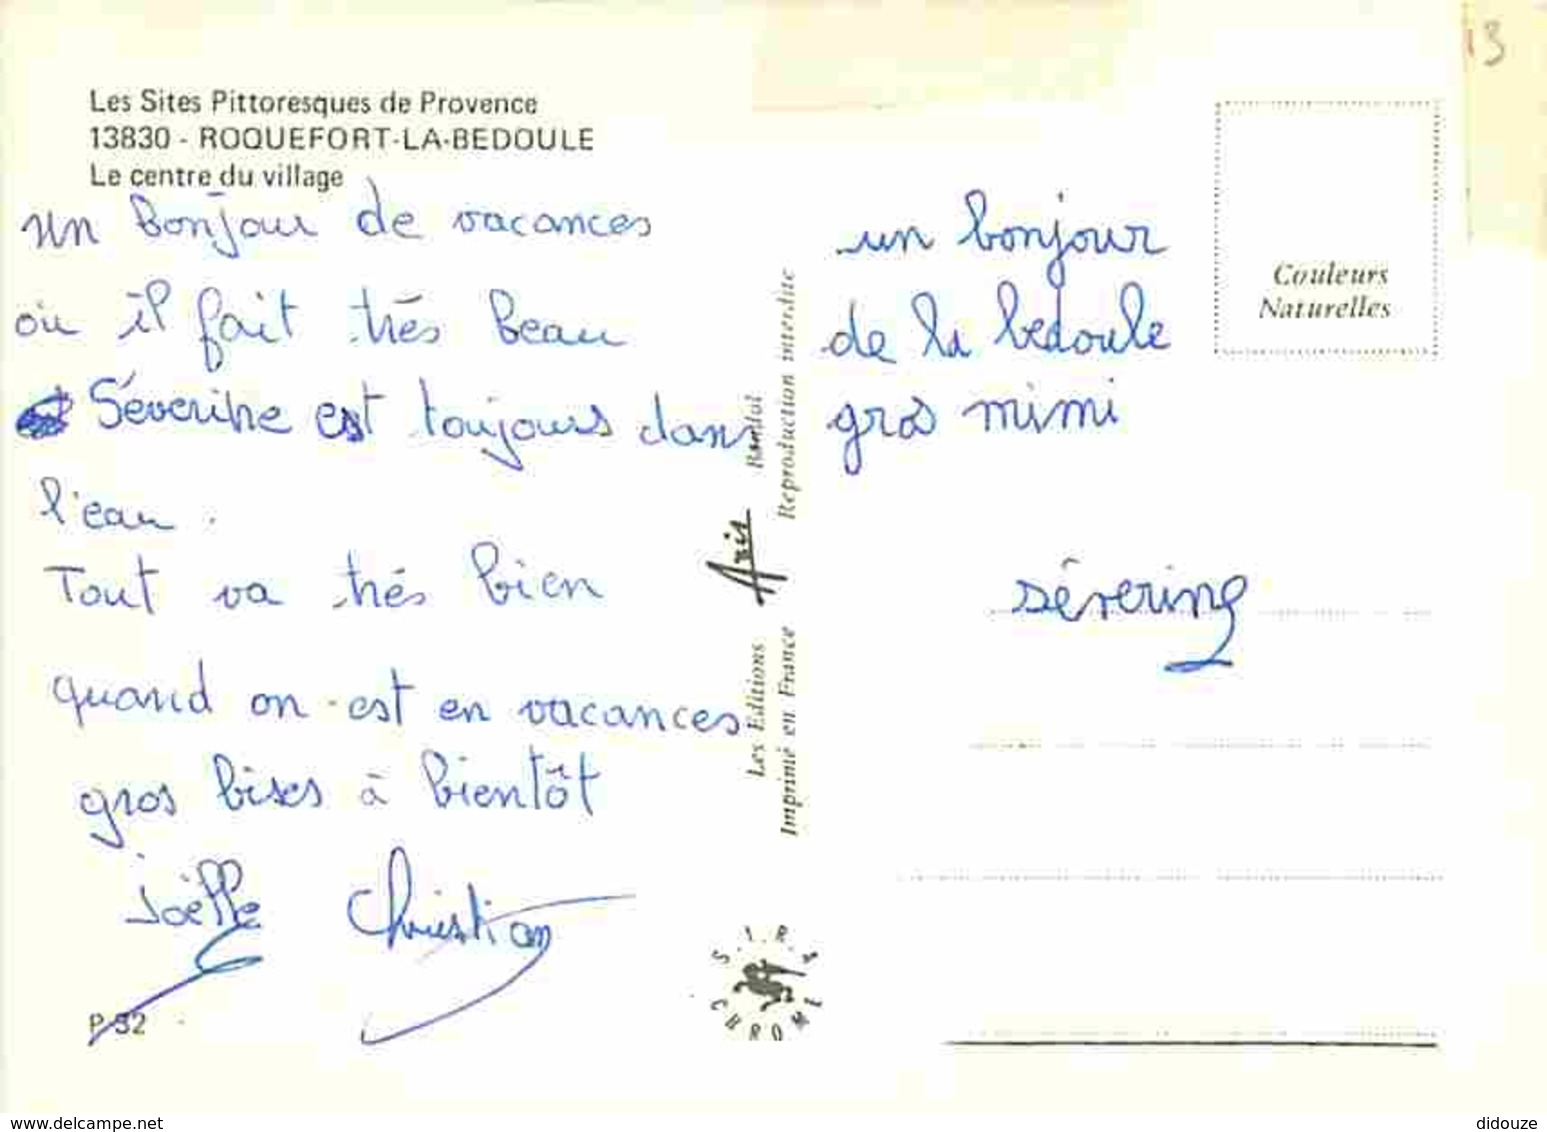 Les Sites Pittoresques de Provence
13830 - ROQUEFORT-LA-BEDOULE
Le centre du village
un bonjour de vacances
où il fait trés beau
Séverine est toujours dans
l'eau.
Tout va trés bien
quand on est en vacances
gros bises à bientôt
Joëlle Christian
P 32
Les Editions Aris Bandol
Imprimé en France Reproduction interdite
S.I.R.A CHROME
13
Couleurs
Naturelles
un bonjour
de la bedoule
gros mimi
séverine
www.delcampe.net
didouze